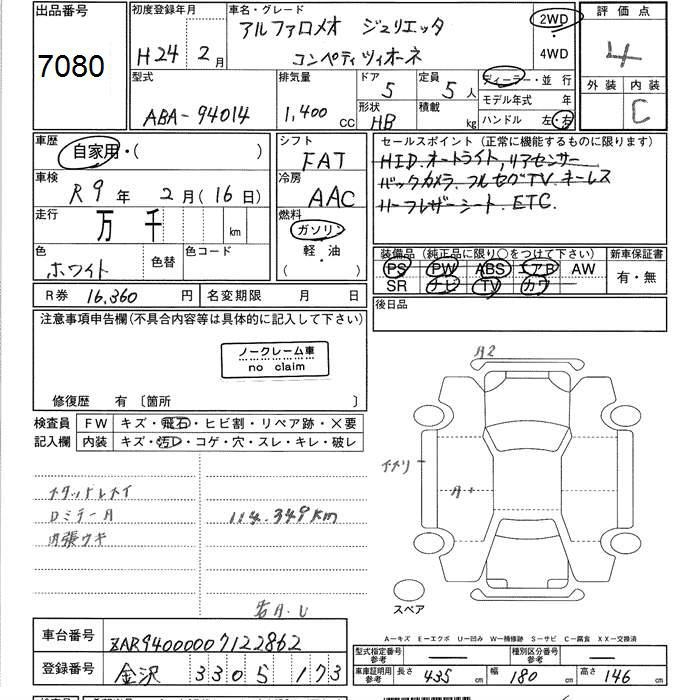 出品番号
7080
初度登録年月
H24年 2月
車名・グレード
アルファロメオ ジュリエッタ
コンペティツィオーネ
2WD
・
4WD
評価点
4
外装 内装
C
型式
ABA-94014
排気量
1,400 CC
ドア
5
形状
HB
定員
5人
積載
kg
ディーラー・並行
モデル年式 年
ハンドル 左・右
車歴
自家用・( )
車検
R9年 2月(16日)
走行
万 千 km
色
ホワイト
色替
色コード
シフト
FAT
冷房
AAC
燃料
ガソリン
軽・油
( )
セールスポイント(正常に機能するものに限ります)
HID.オートライト,リアセンサー
バックカメラ.フルセグTV.キーレス
ハーフレザーシート.ETC.
装備品(純正品に限り○をつけて下さい)
PS PW ABS エアB AW
SR ナビ TV カワ
新車保証書
有・無
R券 16,360 円
名変期限 月 日
後日品
注意事項申告欄(不具合内容等は具体的に記入して下さい)
ノークレーム車
no claim
修復歴 有〔箇所 〕
検査員
記入欄
FW キズ・飛石・ヒビ割・リペア跡・×要
内装 キズ・汚レ・コゲ・穴・スレ・キレ・破レ
A2
A
スペア
114.349km
A-キズ E-エクボ U-凹み W-補修跡 S-サビ C-腐食 XX-交換済
車台番号 ZAR94000007122862
登録番号 金沢 330 5 173
型式指定番号 参考
種別区分番号 参考
車庫証明用 参考 長さ 435 cm 幅 180 cm 高さ 146 cm